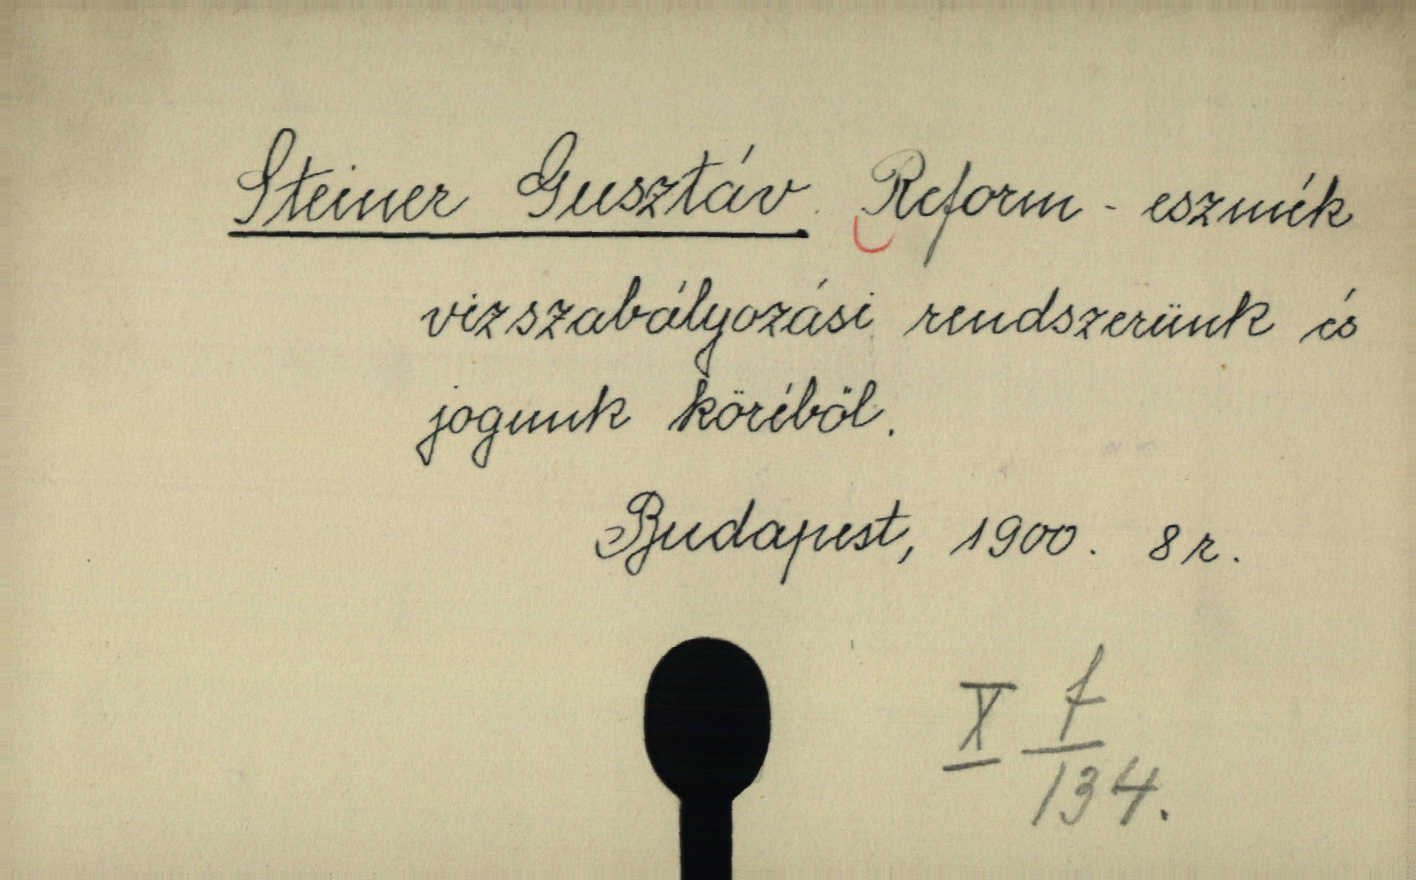 Steiner Gusztáv. Reform-eszmék
vizszabályozási rendszerünk és
jogunk köréből.
Budapest, 1900. 8 r.
X f
134.